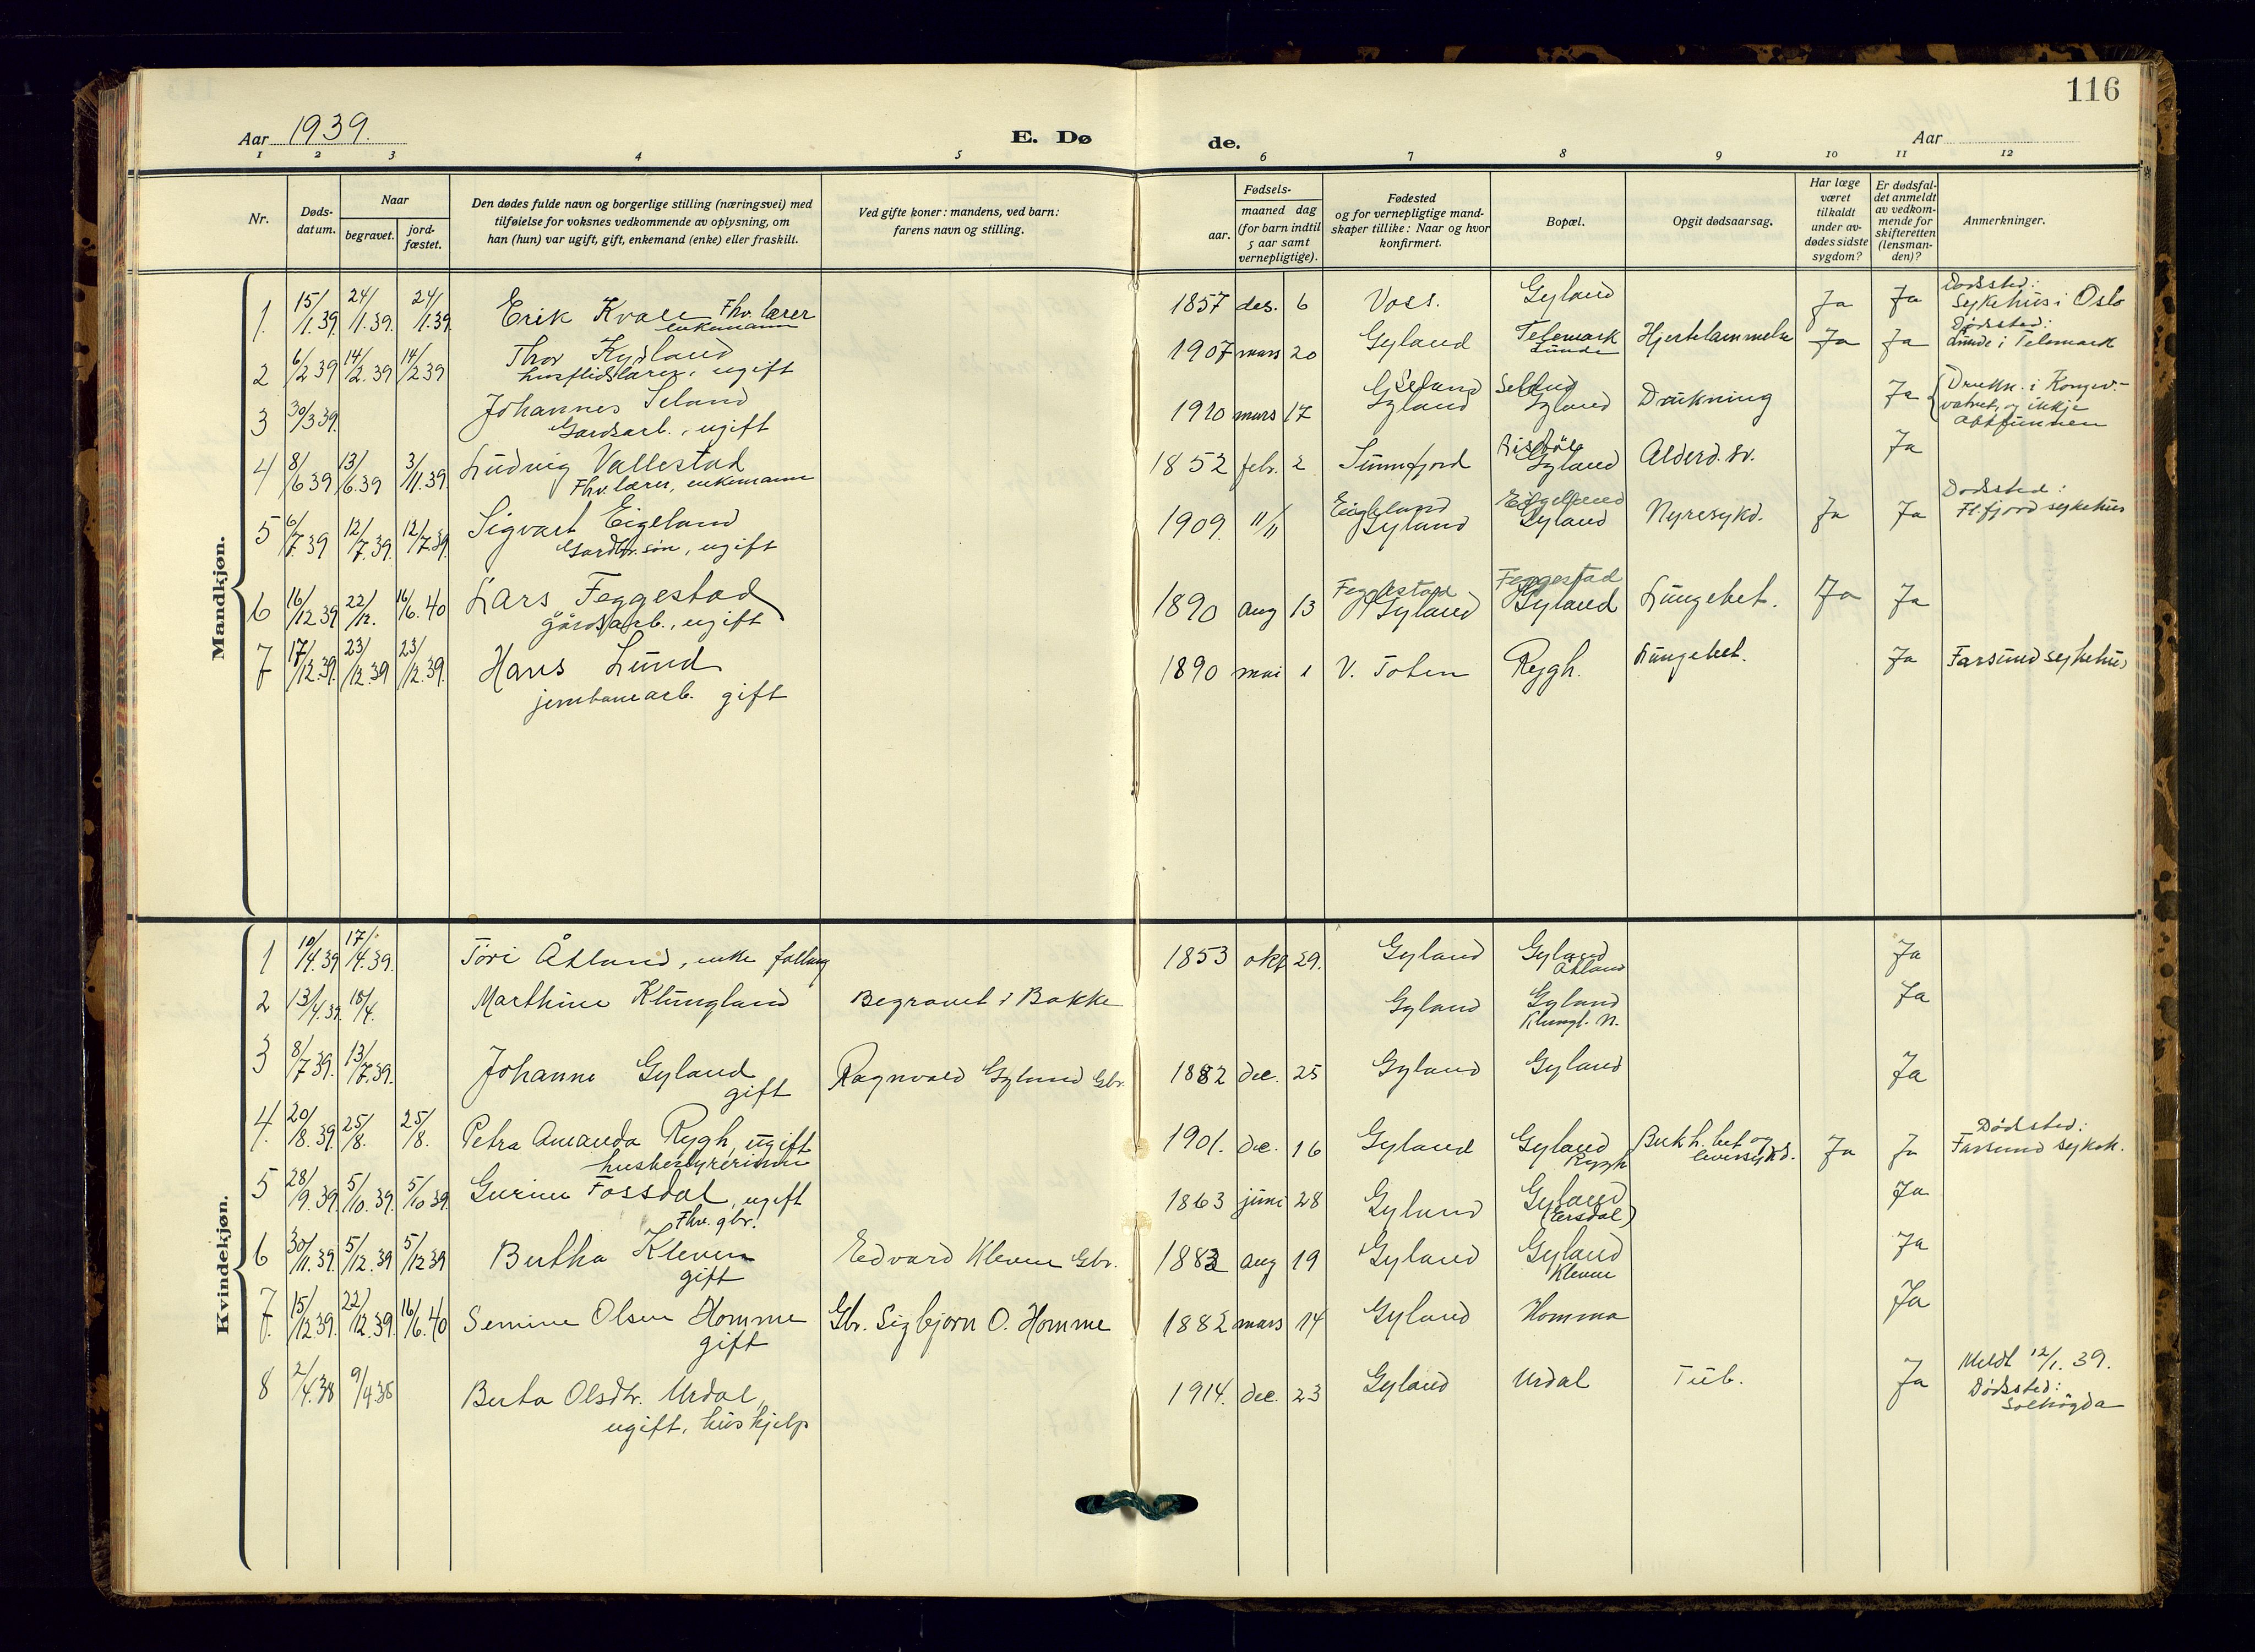 116
Aar 1939.
E. Dø
de.
Aar
1 2 3 4 5 6 7 8 9 10 11 12
Nr.
Døds-
datum.
Naar
begravet.
jord-
fæstet.
Den dødes fulde navn og borgerlige stilling (næringsvei) med
tilføielse for voksnes vedkommende av oplysning, om
han (hun) var ugift, gift, enkemand (enke) eller fraskilt.
Ved gifte koner: mandens, ved barn:
farens navn og stilling.
Fødsels-
aar.
maaned dag
(for barn indtil
5 aar samt
vernepligtige).
Fødested
og for vernepligtige mand-
skaper tillike: Naar og hvor
konfirmert.
Bopæl.
Opgit dødsaarsag.
Har læge
været
tilkaldt
under av-
dødes sidste
sygdom?
Er dødsfal-
det anmeldt
av vedkom-
mende for
skifteretten
(lensman-
den)?
Anmerkninger.
Mandkjøn.
1. 15/1.39. 24/1.39. 24/1.39. Erik Kvale Fhv. lærer
enkemann
1857 des. 6 Voss. Gyland Ja Ja Dødssted:
Sykehus i Oslo
2 6/2 39 14/2.39 14/2 39 Thor Kydland
husflidslærer, ugift
1907 mars 20 Gyland Telemark
Lunde
Hjertelammelse Ja Ja Dødssted:
Lunde i Telemark
3 30/3 39. Johannes Seland
Gardsarb., ugift
1920 mars 17 Seland
Gyland
Seland
Gyland
Drukning Ja Drukn. i
vatnet, og ikkje
attfunnen
4 8/6 39 13/6.39 3/11.39. Ludvig Vallestad
Fhv. lærer, enkemann
1852 febr. 2 Sunnfjord Gyland Alderd.sv. Ja
5 6/7 39 12/7.39. 12/7.39. Sigvart Eigeland
Gardbr.søn, ugift
1909. 11/11 Eigeland
Gyland
Eigeland
Gyland
Nyresykd. Ja Ja Dødssted:
Fl.fjord sykehus
6 16/12 39 22/12. 16/6.40 Lars Feggestad
gårdsarb., ugift
1890 aug 13 Feggestad
Gyland
Feggestad
Gyland
Lungebet. Ja Ja
7 17/12.39. 23/12.39 23/12.39. Hans Lund
jernbanearb. gift
1890 mai 1 V. Toten Rygh. Lungebet. Ja Farsund sykehus
Kvindekjøn.
1 10/4.39 17/4.39. Tori Åtland, enke
1853 okt 29. Gyland Gyland
Åtland
Ja
2 13/4.39. 18/4. Marthine Klungland Begravet i Bakke
Gyland Gyland
Klungl. N.
Ja
3 8/7 39. 13/7.39. Johanne Gyland
gift
Ragnvald Gyland Gbr.
1882 dec. 25 Gyland Gyland Ja
4. 20/8.39. 25/8. 25/8. Petra Amanda Rygh, ugift
husbestyrerinne
1901. dec. 16 Gyland Gyland
Rygh
Bukh. bet og
leversykd.
Ja Ja Dødssted:
Farsund sykeh.
5 28/9.39. 5/10.39. 5/10 39. Gurine Fossdal, ugift
Fhv. gbr.
1863 juni 28 Gyland Gyland
(Ersdal)
Ja
6 30/11.39. 5/12.39 5/12 39 Bertha Kleven
gift
Edvard Kleven Gbr.
1882 aug 19 Gyland Gyland
Kleven
Ja
7. 15/12 39. 22/12.39. 16/6.40 Semine Olsen Homme
gift
Gbr. Sigbjørn O. Homme
1882 mars 14 Gyland Homma Ja
8 2/4.38 9/4.38 Berta Olsdtr. Urdal,
ugift, hushjelp
1914. dec. 23 Gyland Urdal Tub. Ja Meldt 12/1. 39.
Dødssted:
Solhøgda